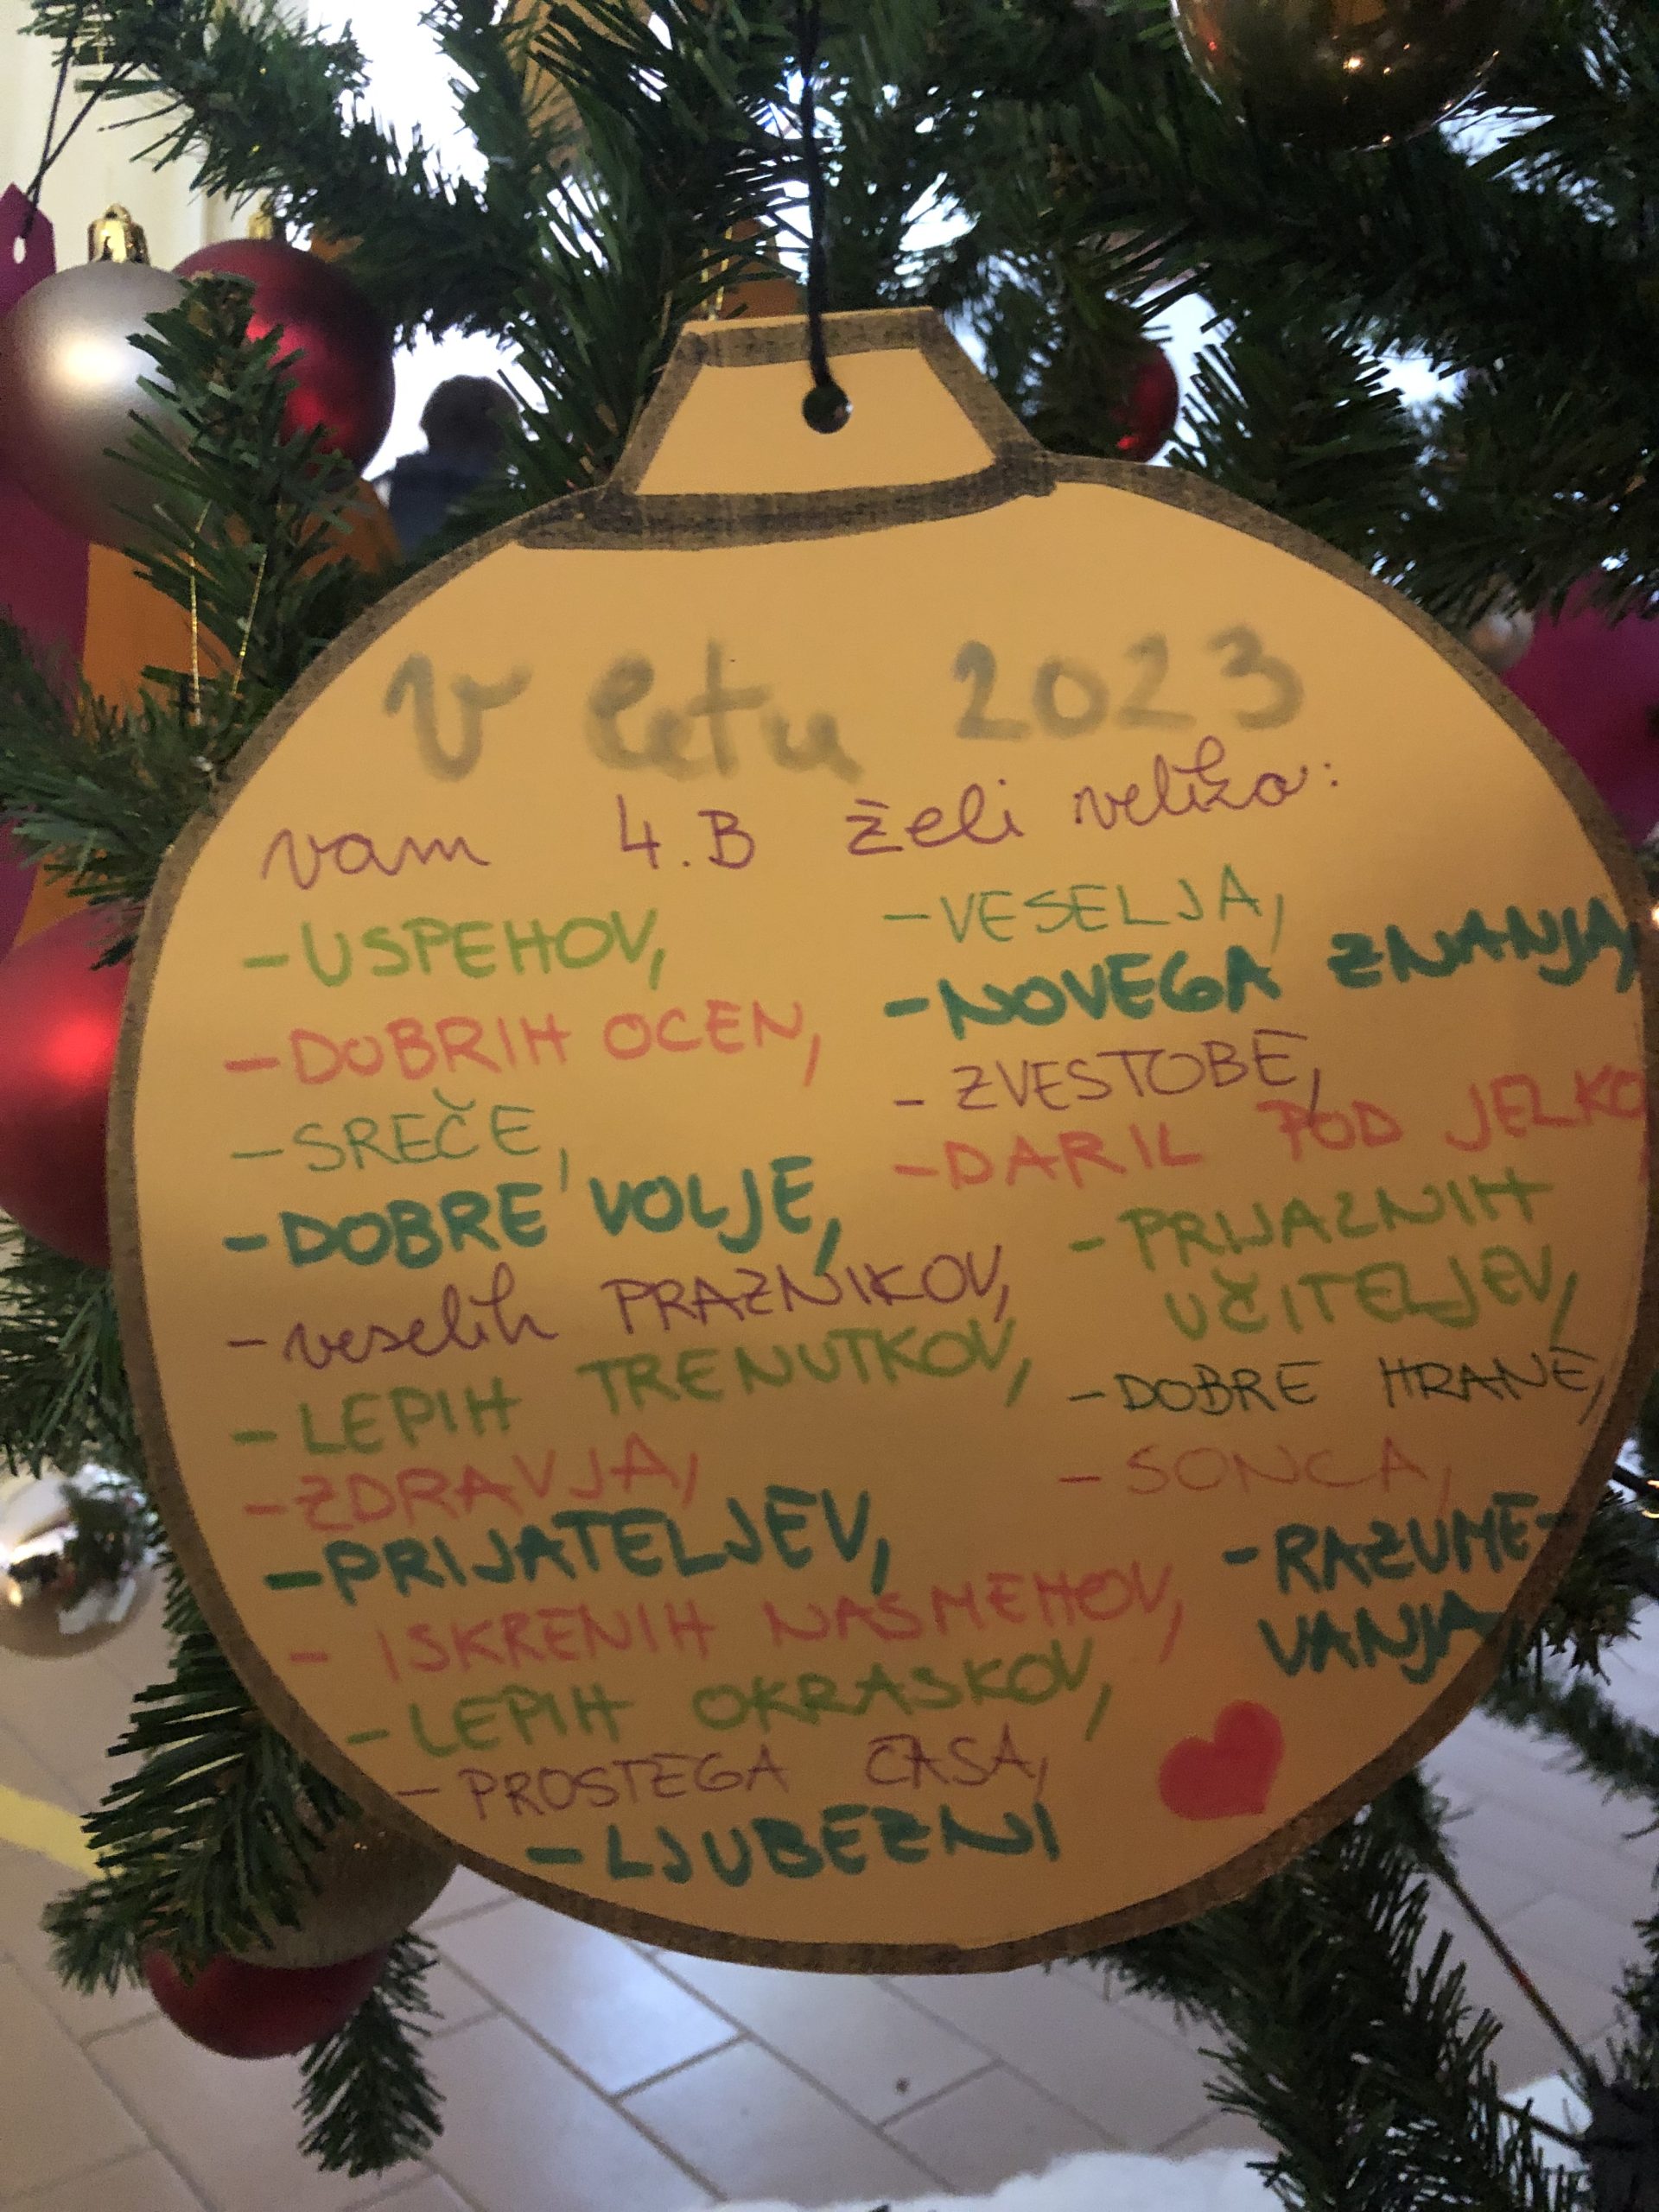 V letu 2023
vam 4.B želi veliko:
-USPEHOV,
-DOBRIH OCEN,
-SREČE,
-DOBRE VOLJE,
-veselih PRAZNIKOV,
-LEPIH TRENUTKOV,
-ZDRAVJA,
-PRIJATELJEV,
- ISKRENIH NASMEHOV,
-LEPIH OKRASKOV,
-PROSTEGA ČASA,
-LJUBEZNI
-VESELJA,
-NOVEGA ZNANJA,
- ZVESTOBE,
-DARIL POD JELKO
-PRIJAZNIH
UČITELJEV,
-DOBRE HRANE,
- SONCA,
-RAZUME-
VANJA